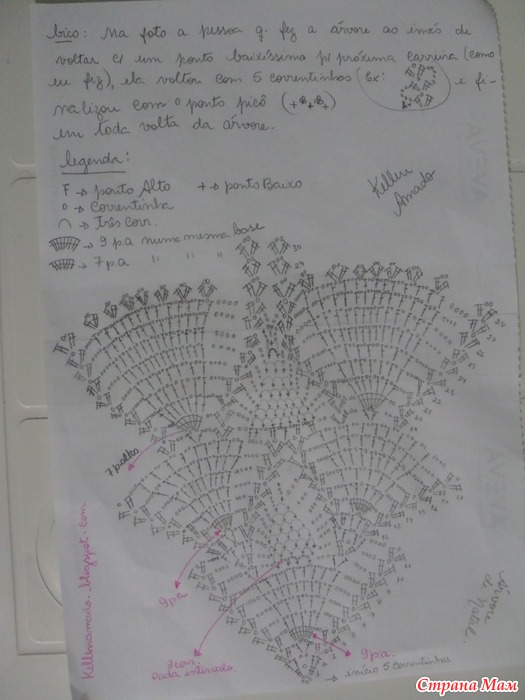 bico: na foto a pessoa q. fez a árvore ao invés de
voltar c/ um ponto baixíssimo p/ próxima carreira (como
eu fiz), ela voltou com 5 correntinhas (Ex: ) e fi-
nalizou com o ponto picô
em toda volta da árvore.
legenda:
F → ponto Alto + → ponto Baixo
o → correntinha
→ Três corr.
→ 9 p.a numa mesma base
→ 7 p a " " "
Kellen
Amado
30
29
7 p.alto
9pa
3 corr.
cada intervalo
9pa.
→ início 5 correntinhas
Árvore
de Natal
Kellenamado.blogspot.com
AVEVA
AVEVA
Страна Мам